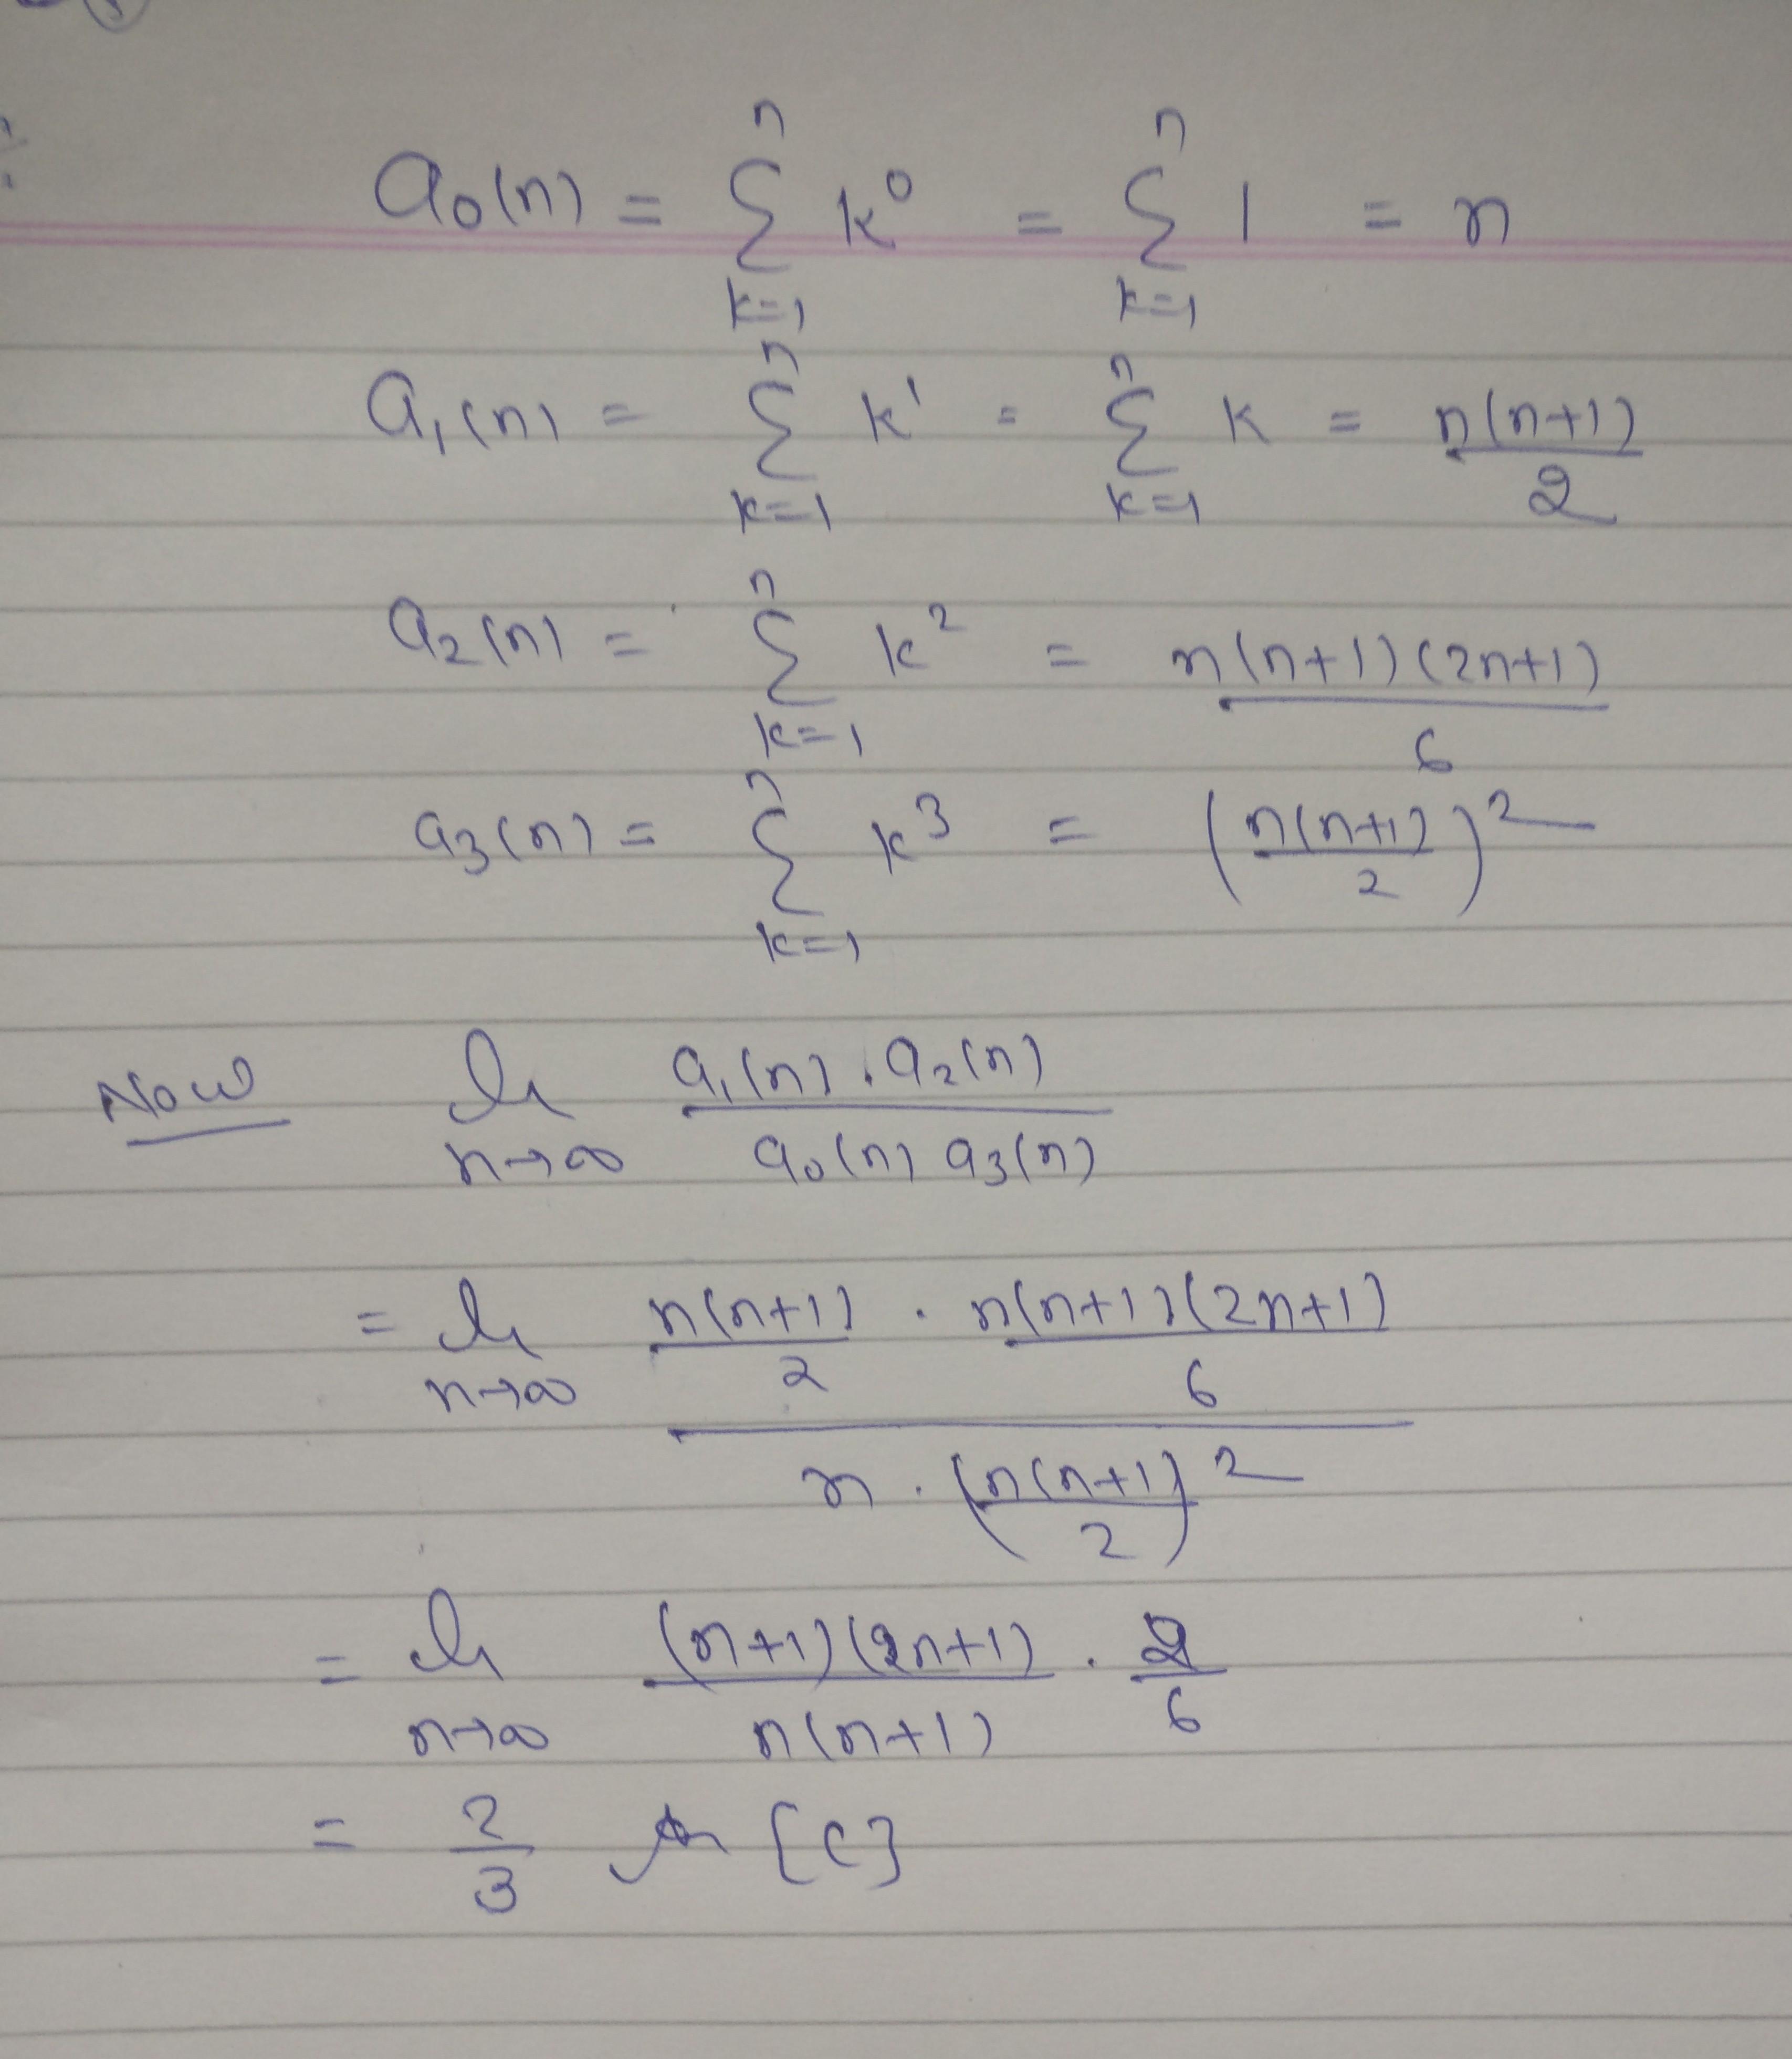 a₀(n) = Σ_{k=1}^{n} k⁰ = Σ_{k=1}^{n} 1 = n
a₁(n) = Σ_{k=1}^{n} k¹ = Σ_{k=1}^{n} k = n(n+1)/2
a₂(n) = Σ_{k=1}^{n} k² = n(n+1)(2n+1)/6
a₃(n) = Σ_{k=1}^{n} k³ = (n(n+1)/2)²
Now lim_{n→∞} a₁(n).a₂(n) / a₀(n) a₃(n)
= lim_{n→∞} (n(n+1)/2 . n(n+1)(2n+1)/6) / (n . (n(n+1)/2)²)
= lim_{n→∞} (n+1)(2n+1)/n(n+1) . 2/6
= 2/3 {c}